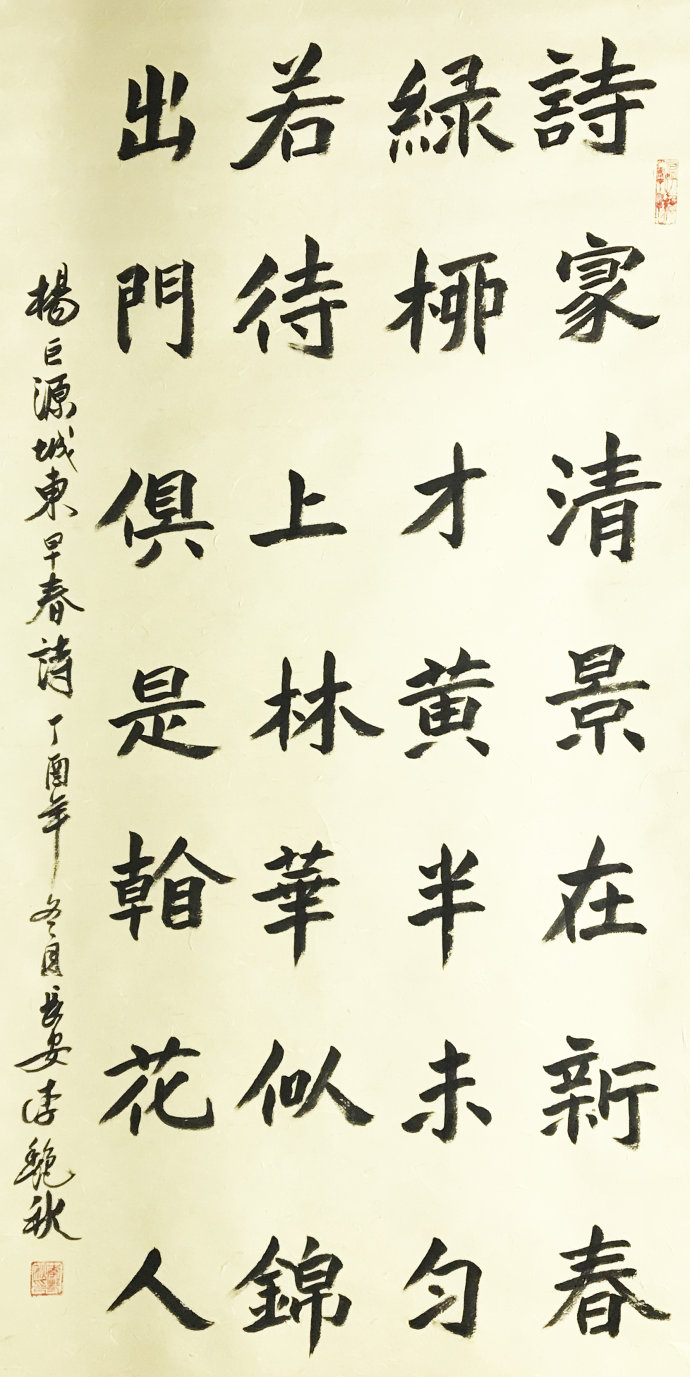 詩家清景在新春
緑柳才黄半未匀
若待上林華似錦
出門俱是看花人
楊巨源城東早春詩丁酉年冬月長安李秋